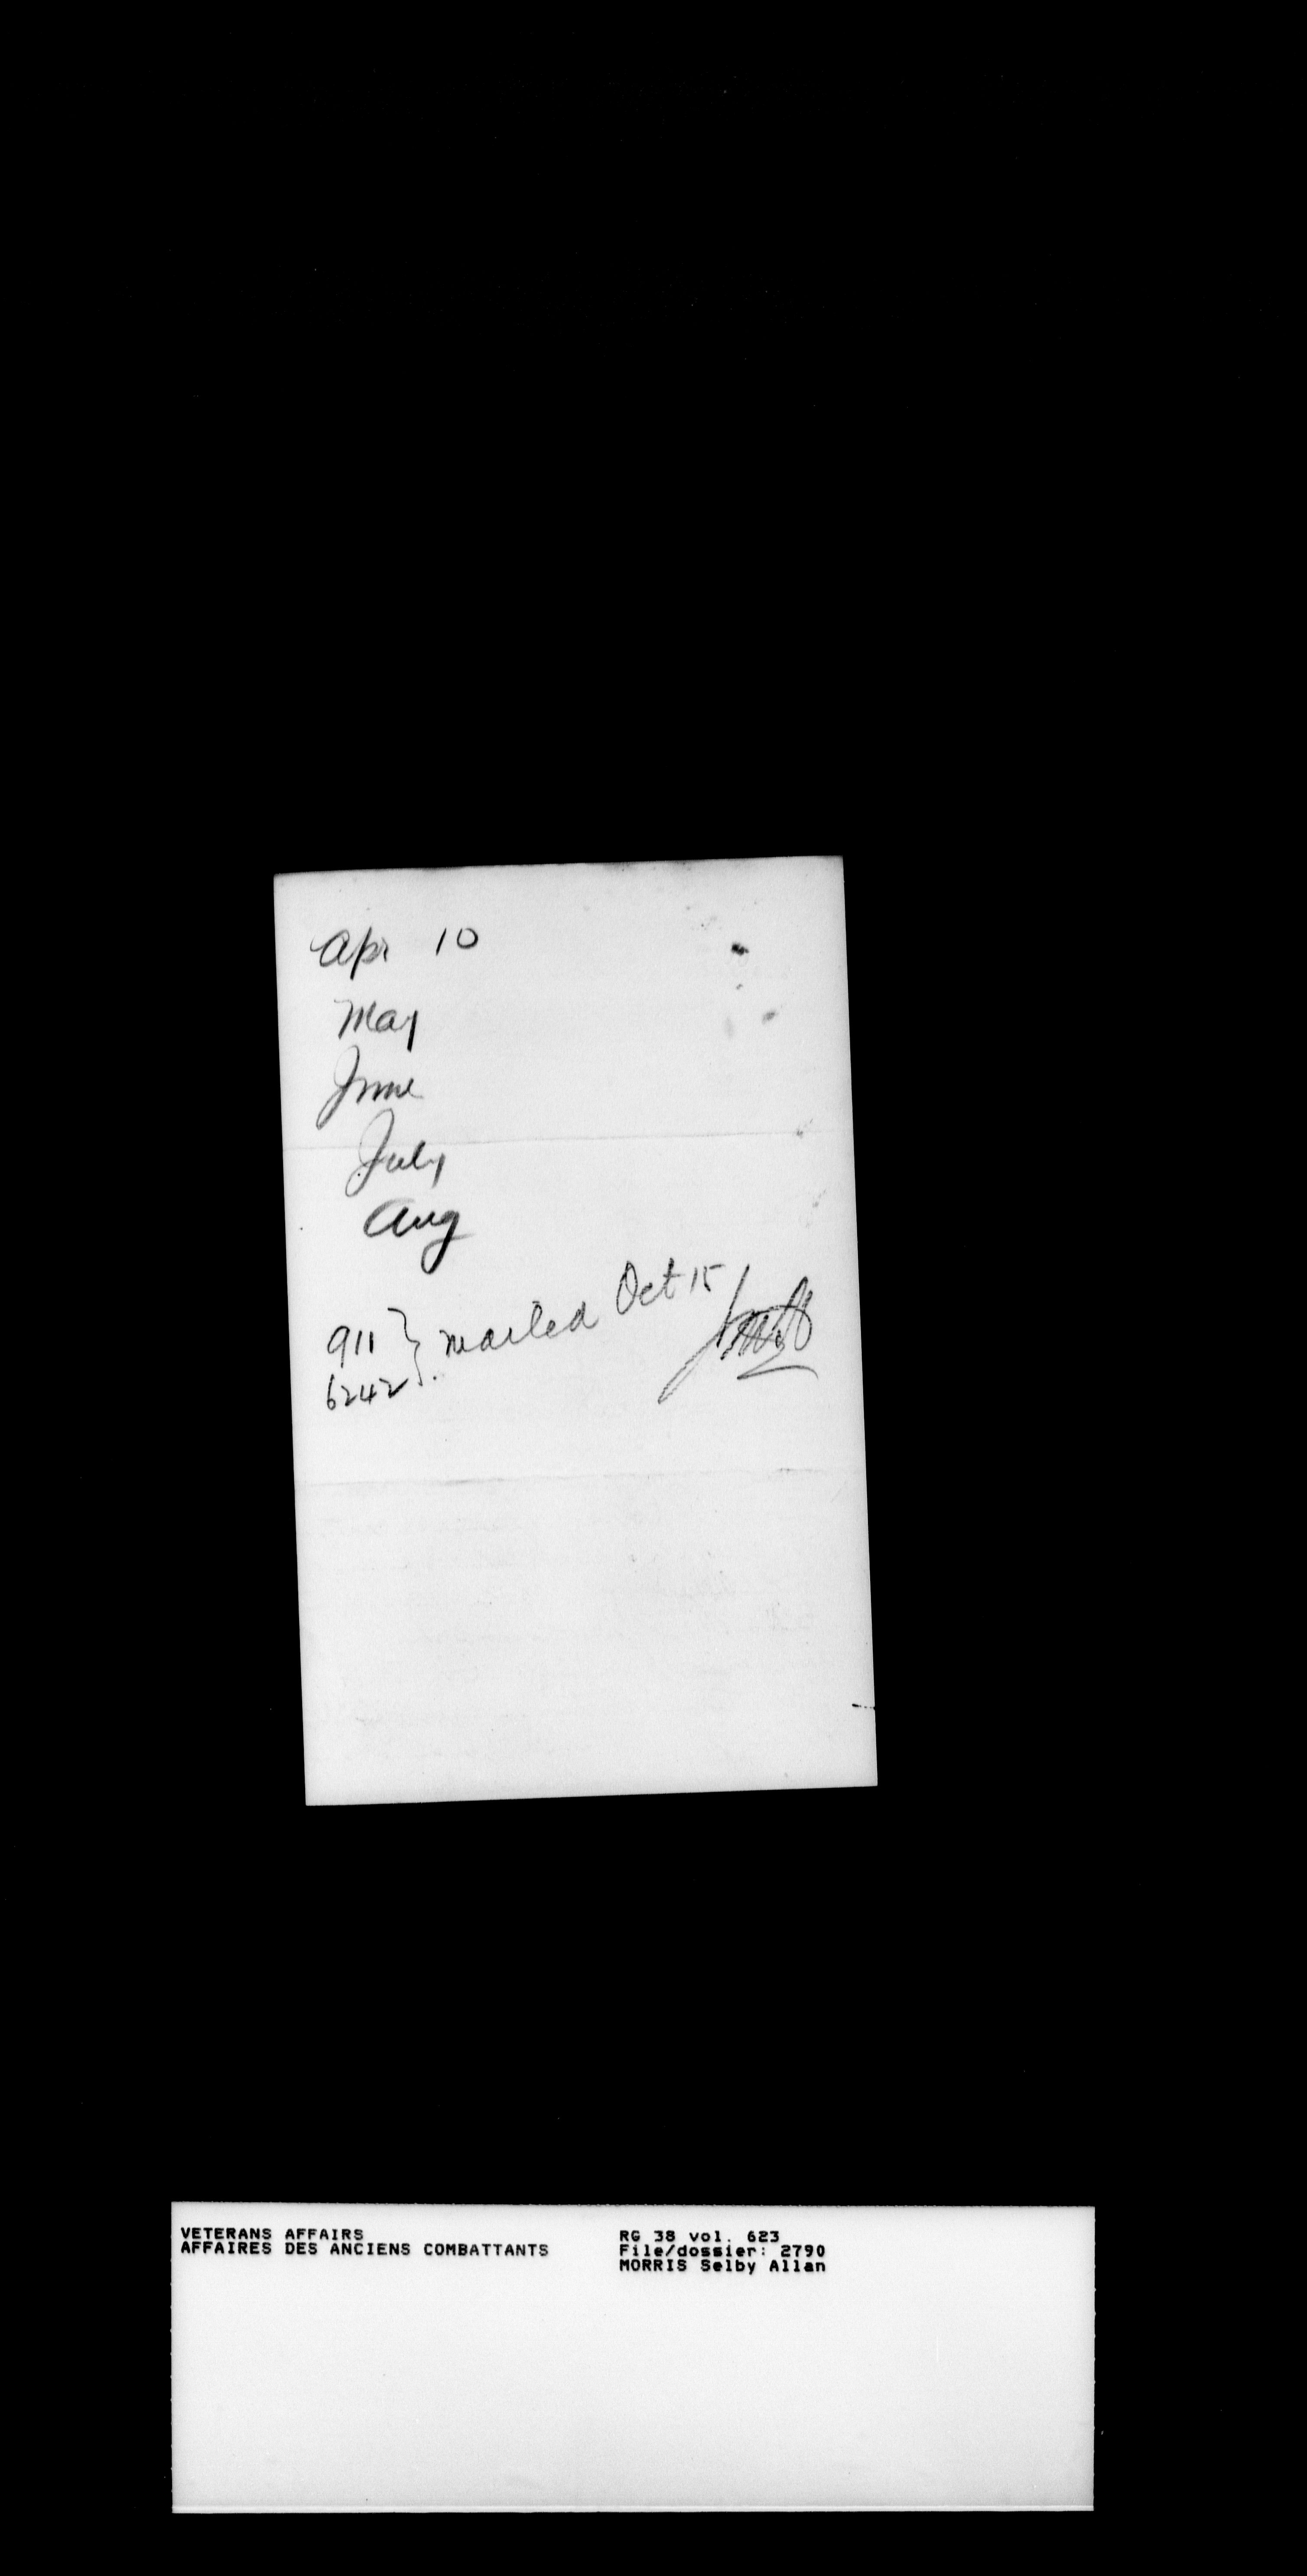 Apr 10
May
June
July
Aug
911 } mailed Oct 15
6242
VETERANS AFFAIRS
AFFAIRES DES ANCIENS COMBATTANTS
RG 38 vol. 623
File/dossier: 2790
MORRIS Selby Allan